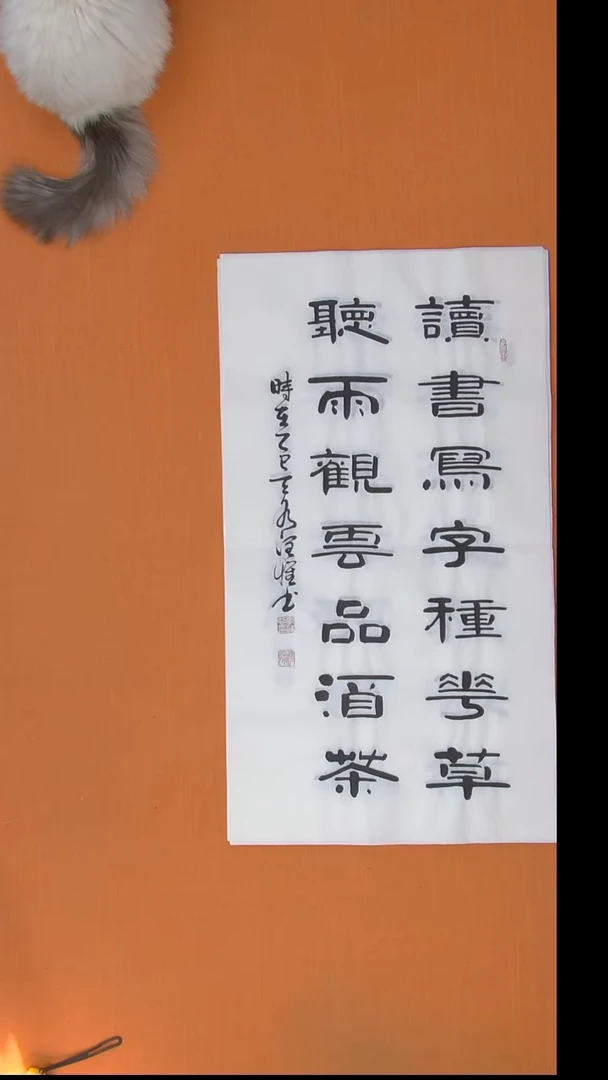 讀書寫字種花草
聽雨觀雲品酒茶
時在乙巳天